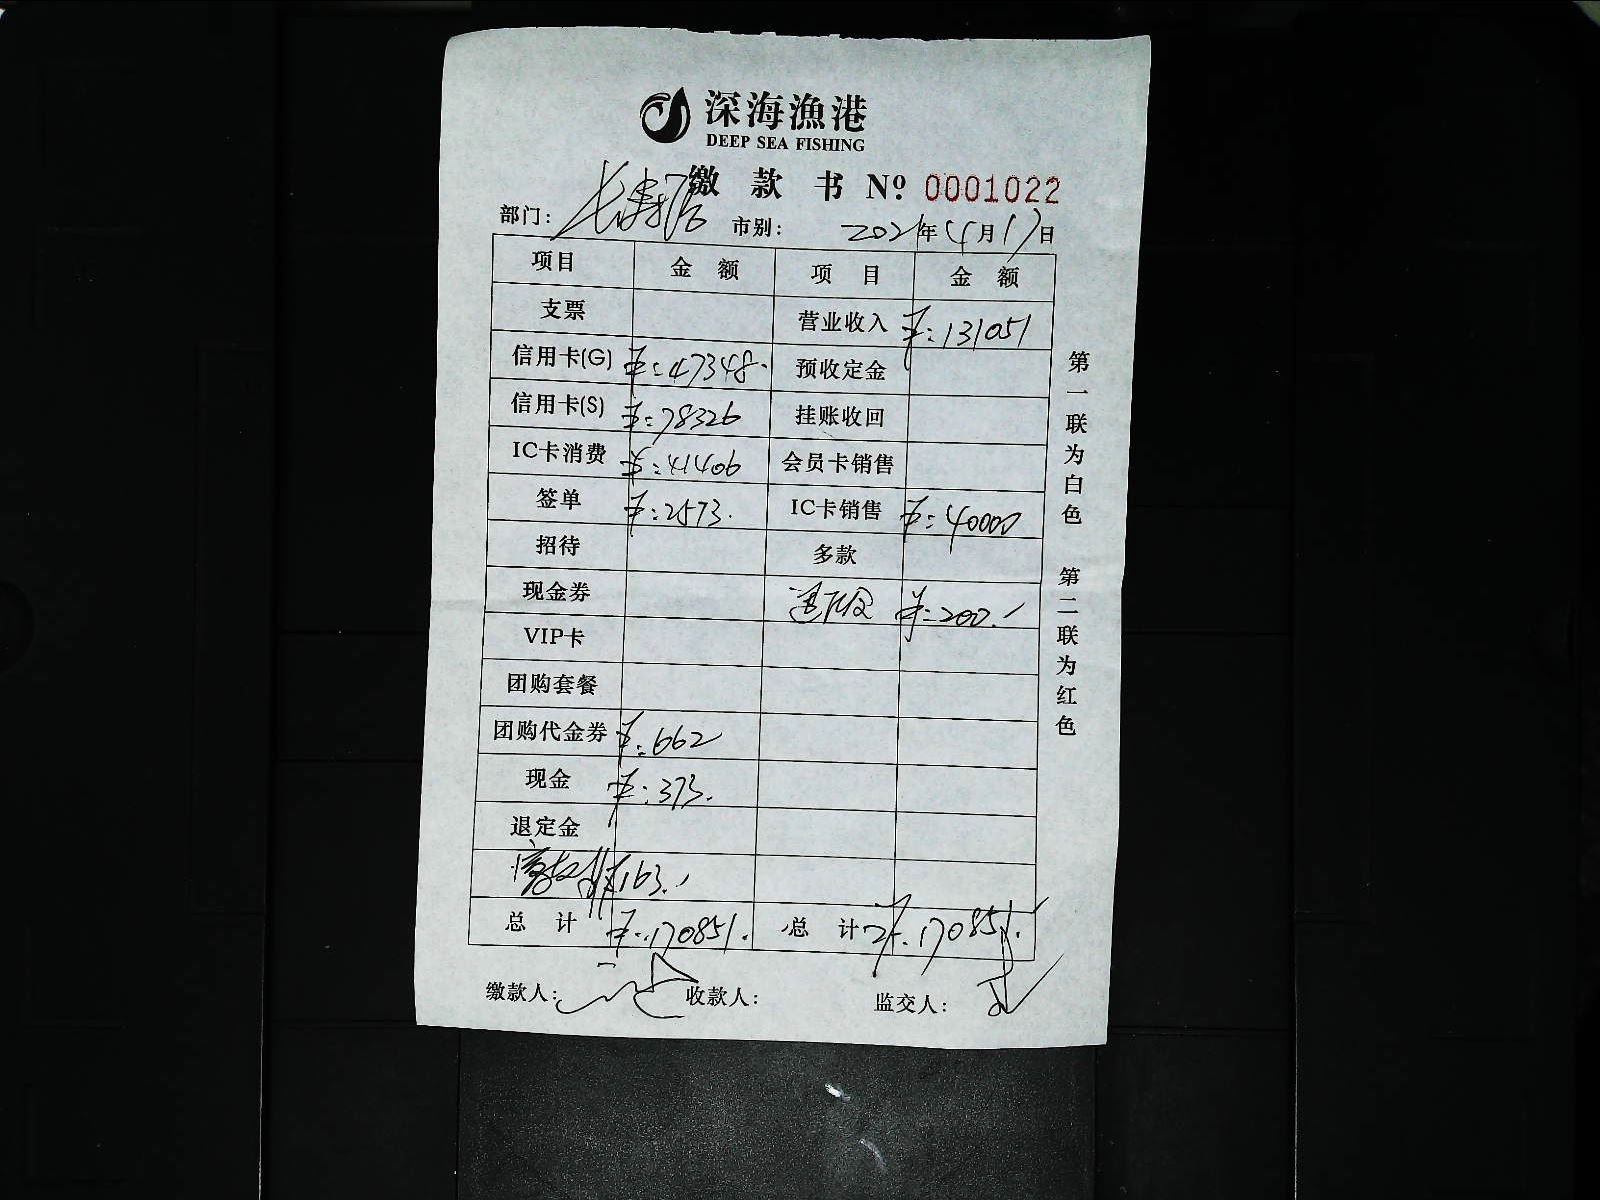 深海漁港
DEEP SEA FISHING
缴 款 书 Nº 0001022
部门: 市别: 2021年4月17日
项目 金 额 项 目 金 额
支票 营业收入 ¥:131051
信用卡(G) ¥:47348. 预收定金
信用卡(S) ¥:78326 挂账收回
IC卡消费 ¥:41406 会员卡销售
签单 ¥:2573. IC卡销售 ¥:40000
招待 多款
现金券 ¥:200.
VIP卡
团购套餐
团购代金券 ¥:662
现金 ¥:373.
退定金
¥163.
总 计 ¥:170851. 总 计 ¥:170851.
缴款人: 收款人: 监交人:
第一联为白色 第二联为红色